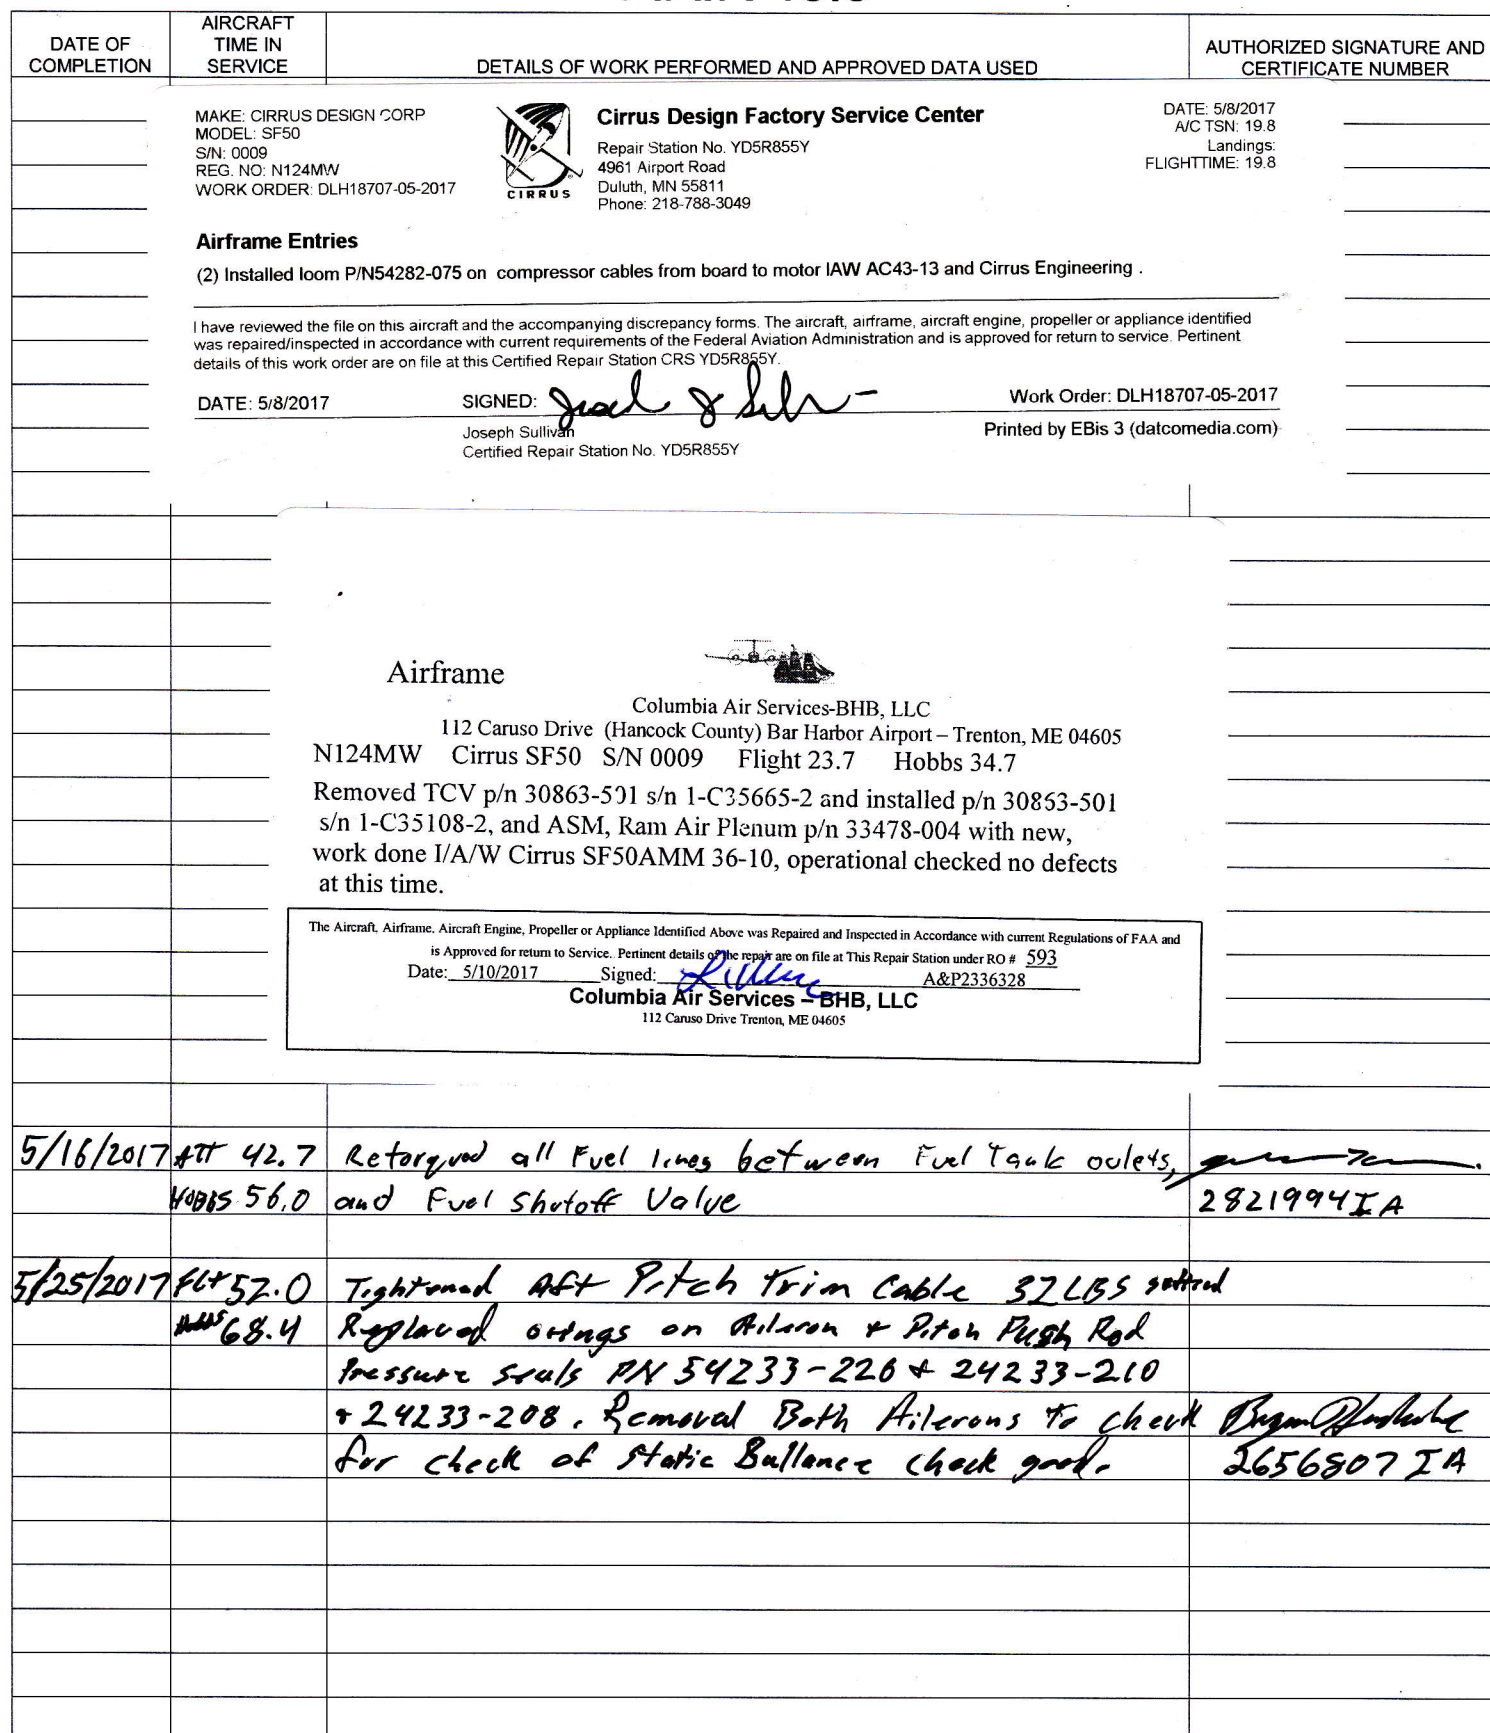 DATE OF COMPLETION
AIRCRAFT TIME IN SERVICE
DETAILS OF WORK PERFORMED AND APPROVED DATA USED
AUTHORIZED SIGNATURE AND CERTIFICATE NUMBER
MAKE: CIRRUS DESIGN CORP
MODEL: SF50
S/N: 0009
REG. NO: N124MW
WORK ORDER: DLH18707-05-2017
CIRRUS
Cirrus Design Factory Service Center
Repair Station No. YD5R855Y
4961 Airport Road
Duluth, MN 55811
Phone: 218-788-3049
DATE: 5/8/2017
A/C TSN: 19.8
Landings:
FLIGHTTIME: 19.8
Airframe Entries
(2) Installed loom P/N54282-075 on compressor cables from board to motor IAW AC43-13 and Cirrus Engineering .
I have reviewed the file on this aircraft and the accompanying discrepancy forms. The aircraft, airframe, aircraft engine, propeller or appliance identified
was repaired/inspected in accordance with current requirements of the Federal Aviation Administration and is approved for return to service. Pertinent
details of this work order are on file at this Certified Repair Station CRS YD5R855Y.
DATE: 5/8/2017 SIGNED: Work Order: DLH18707-05-2017
Joseph Sullivan Printed by EBis 3 (datcomedia.com)
Certified Repair Station No. YD5R855Y
Airframe
Columbia Air Services-BHB, LLC
112 Caruso Drive (Hancock County) Bar Harbor Airport – Trenton, ME 04605
N124MW Cirrus SF50 S/N 0009 Flight 23.7 Hobbs 34.7
Removed TCV p/n 30863-501 s/n 1-C35665-2 and installed p/n 30863-501
s/n 1-C35108-2, and ASM, Ram Air Plenum p/n 33478-004 with new,
work done I/A/W Cirrus SF50AMM 36-10, operational checked no defects
at this time.
The Aircraft, Airframe, Aircraft Engine, Propeller or Appliance Identified Above was Repaired and Inspected in Accordance with current Regulations of FAA and
is Approved for return to Service. Pertinent details of the repair are on file at This Repair Station under RO # 593
Date: 5/10/2017 Signed: A&P2336328
Columbia Air Services – BHB, LLC
112 Caruso Drive Trenton, ME 04605
5/16/2017 ATT 42.7 Retorqued all Fuel lines between Fuel Tank oulets,
HOBBS 56.0 and Fuel Shutoff Valve 2821994IA
5/25/2017 FLT 52.0 Tightened Aft Pitch Trim Cable 32 LBS
Hobbs 68.4 Replaced orings on Aileron + Pitch Push Rod
Pressure Seals PN 54233-226 + 24233-210
+ 24233-208. Removal Both Ailerons to check
for check of Static Ballance check good. 2656807 IA